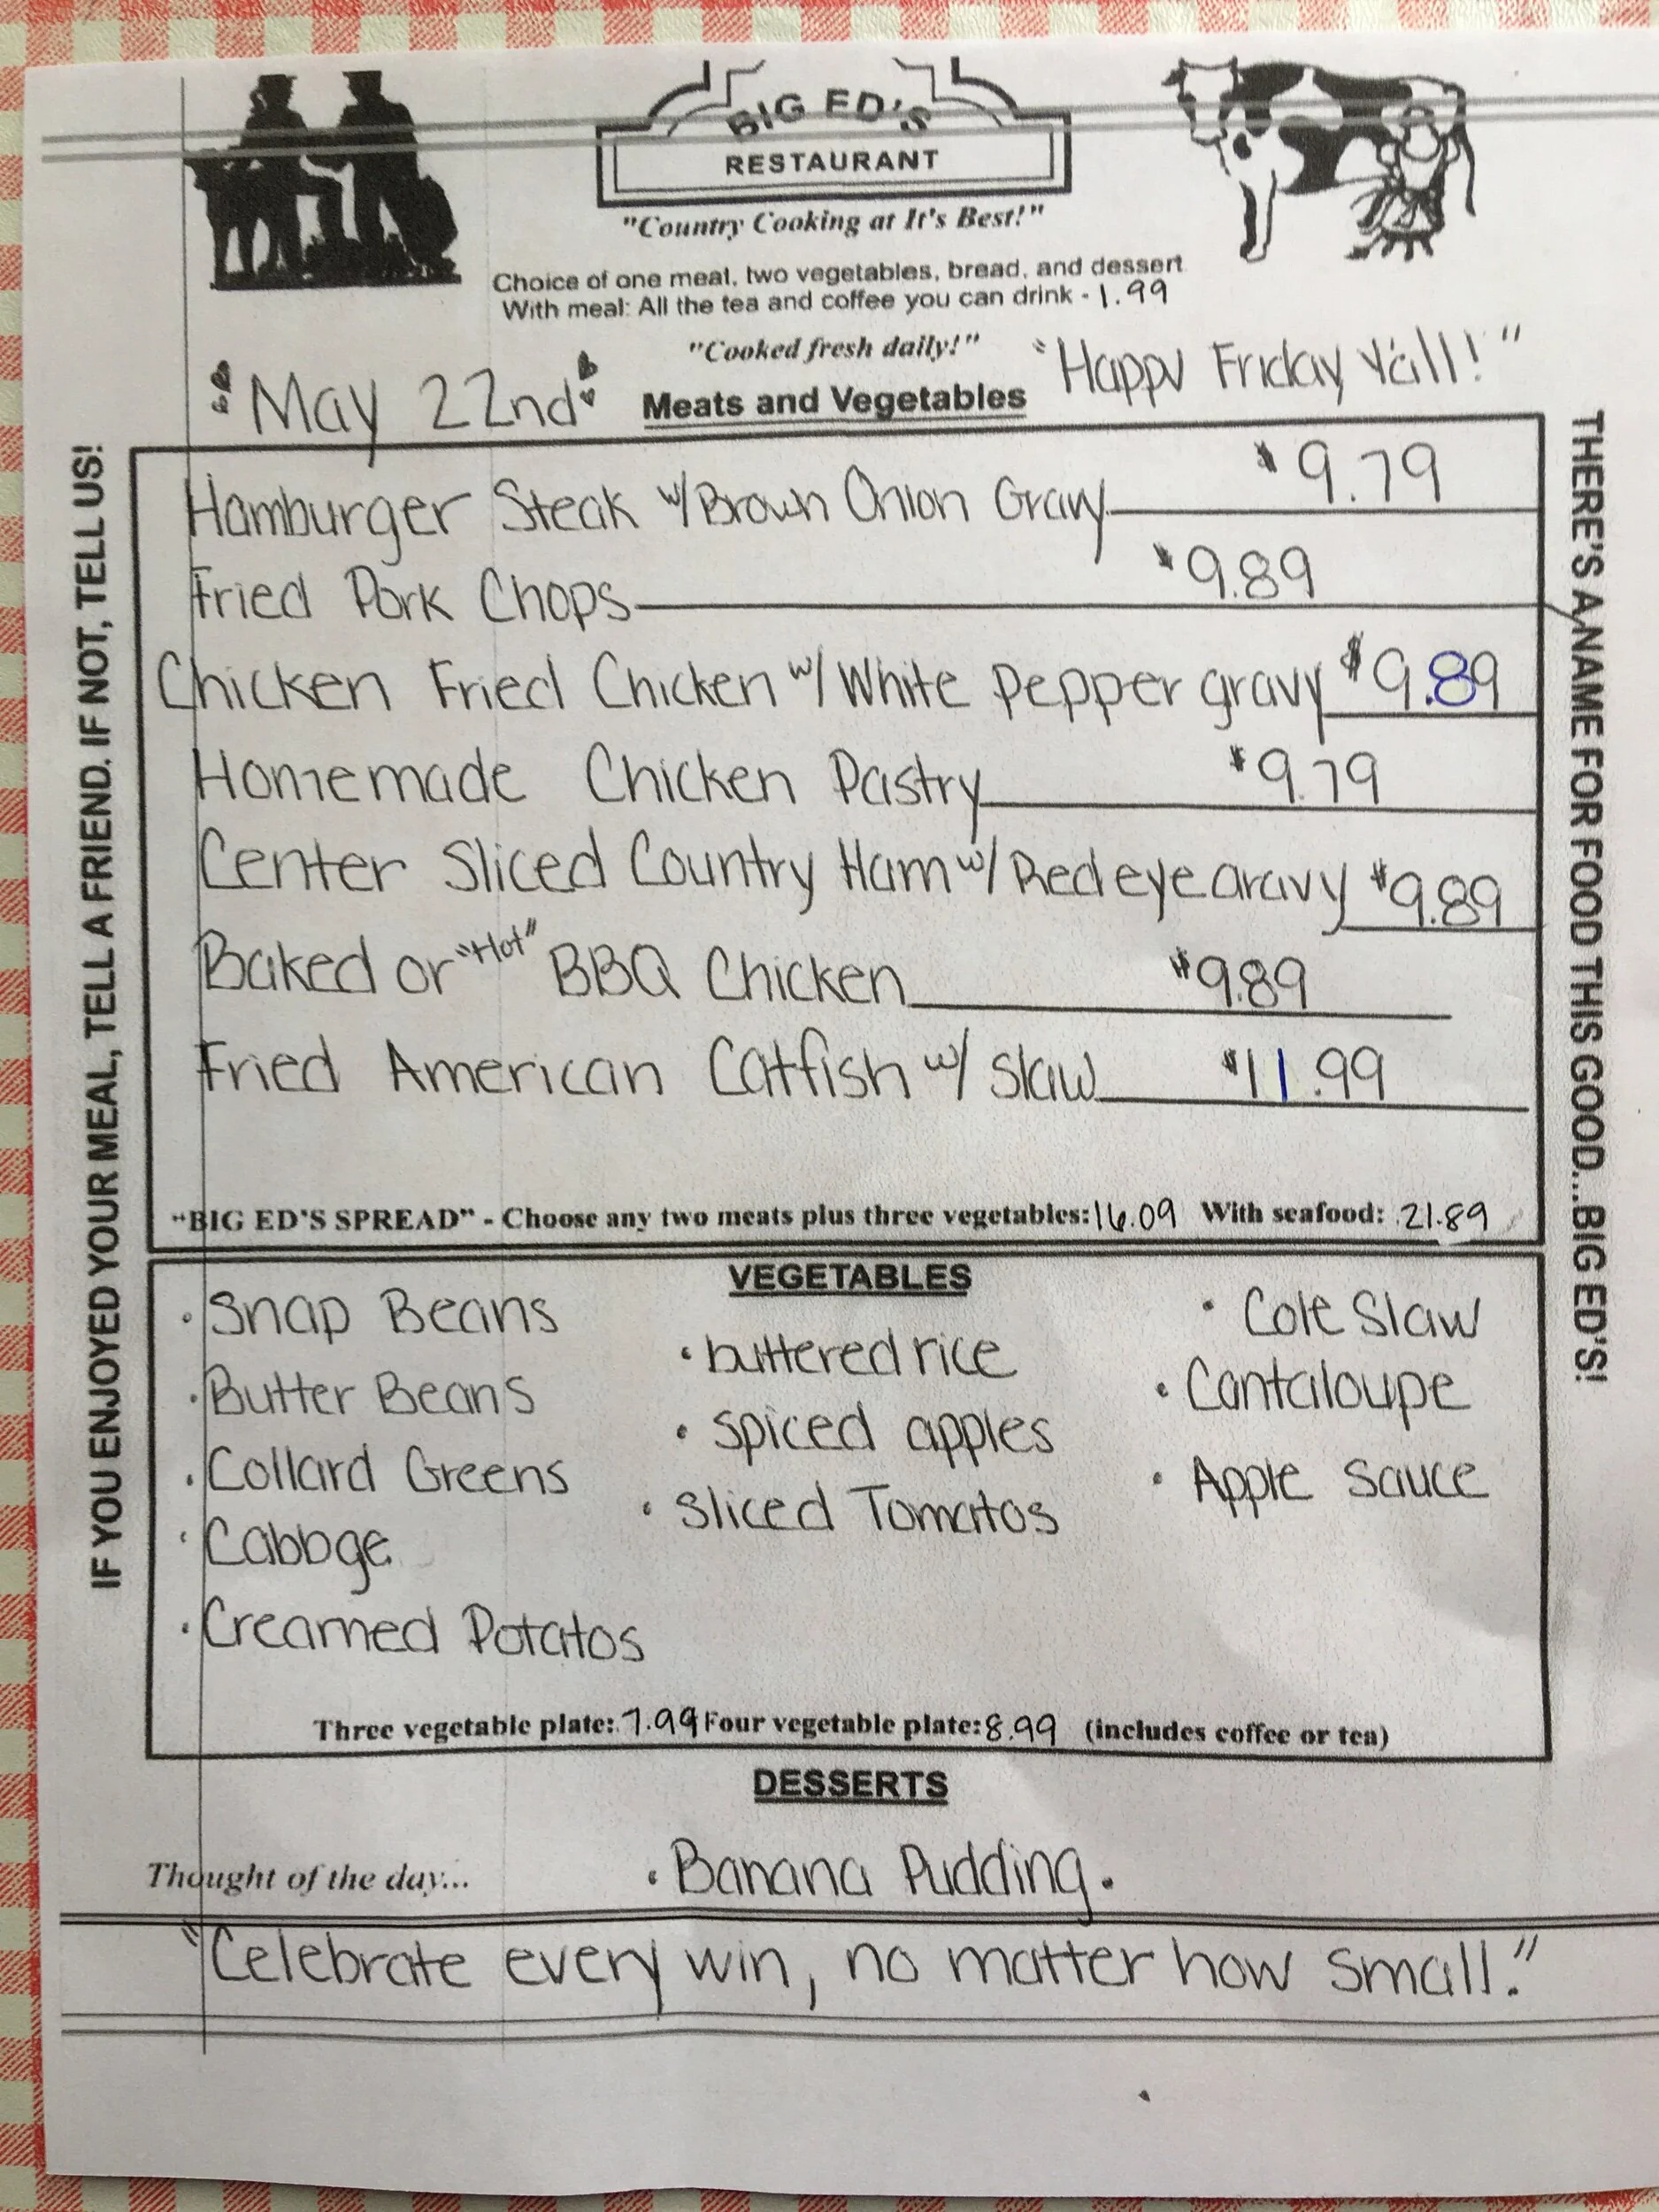 BIG ED'S
RESTAURANT
"Country Cooking at It's Best!"
Choice of one meal, two vegetables, bread, and dessert
With meal: All the tea and coffee you can drink - 1.99
"Cooked fresh daily!"
"Happy Friday Y'all!"
May 22nd
Meats and Vegetables
IF YOU ENJOYED YOUR MEAL, TELL A FRIEND. IF NOT, TELL US!
Hamburger Steak w/Brown Onion Gravy $9.79
Fried Pork Chops $9.89
Chicken Fried Chicken w/White Pepper gravy $9.89
Homemade Chicken Pastry $9.79
Center Sliced Country Ham w/Redeye Gravy $9.89
Baked or "Hot" BBQ Chicken $9.89
Fried American Catfish w/ slaw $11.99
"BIG ED'S SPREAD" - Choose any two meats plus three vegetables: 16.09 With seafood: 21.89
THERE'S A NAME FOR FOOD THIS GOOD...BIG ED'S!
VEGETABLES
• Snap Beans
• Butter Beans
• Collard Greens
• Cabbge
• Creamed Potatos
• buttered rice
• spiced apples
• sliced Tomatos
• Cole Slaw
• Cantaloupe
• Apple Sauce
Three vegetable plate: 7.99 Four vegetable plate: 8.99 (includes coffee or tea)
DESSERTS
• Banana Pudding •
Thought of the day...
"Celebrate every win, no matter how small."